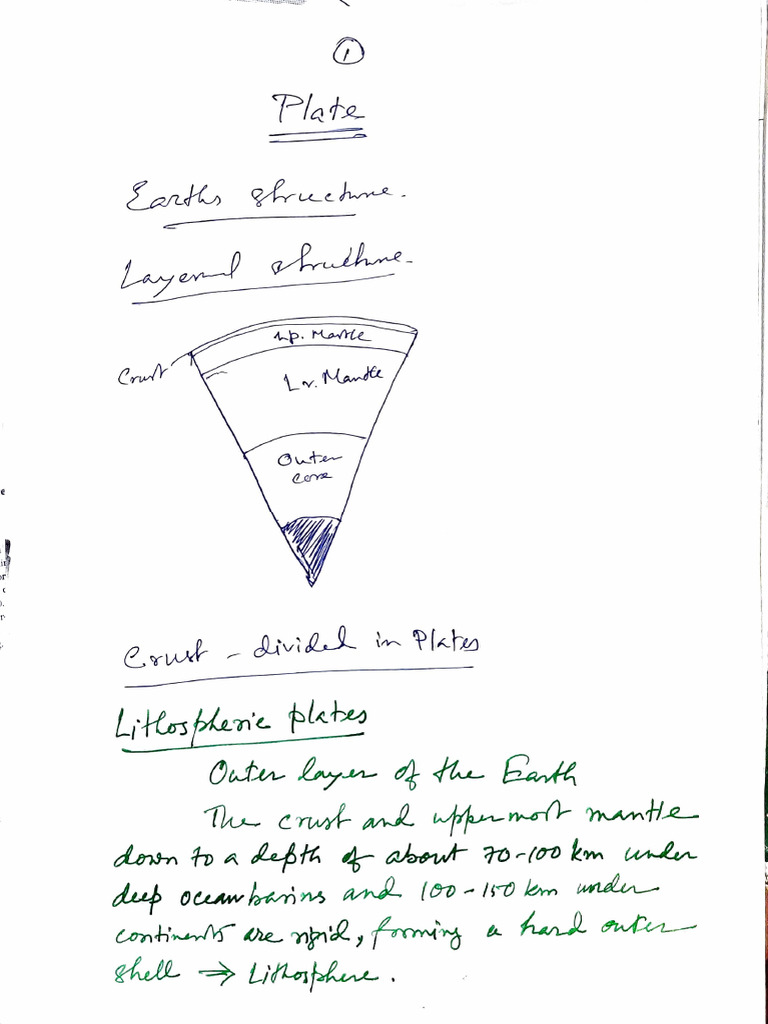 1
Plate
Earths structure.
Layered structure.
up. Mantle
Crust
Lr. Mantle
Outer
core
Crust - divided in Plates
Lithospheric plates
Outer layer of the Earth
The crust and uppermost mantle
down to a depth of about 70-100 km under
deep ocean basins and 100-150 km under
continents are rigid, forming a hard outer
shell ⇒ Lithosphere.